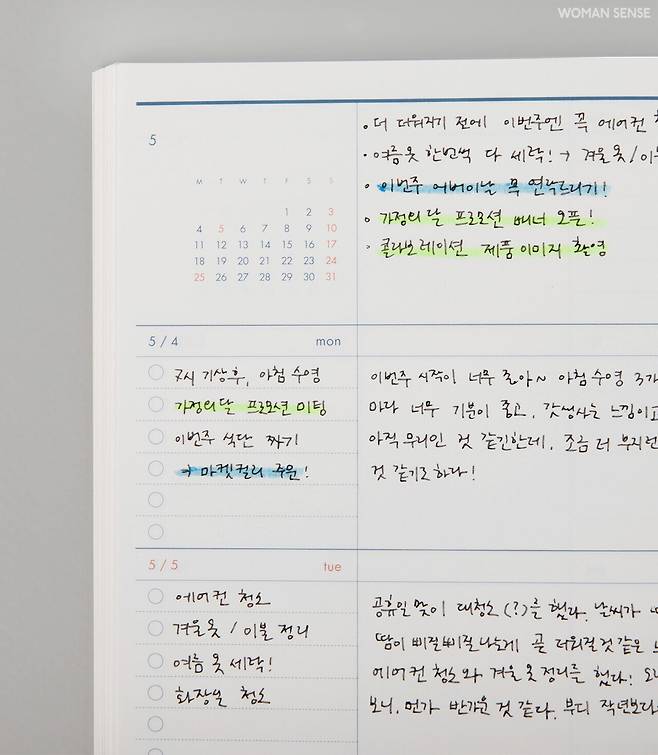 WOMAN SENSE
5
M T W T F S S
1 2 3
4 5 6 7 8 9 10
11 12 13 14 15 16 17
18 19 20 21 22 23 24
25 26 27 28 29 30 31
• 더 더워지기 전에 이번주엔 꼭 에어컨
• 여름옷 한번씩 다 세탁! → 겨울옷/이불
• 이번주 어버이날 꼭 연락드리기!
• 가정의달 프로모션 배너 오픈!
• 콜라보레이션 제품이미지 촬영
5 / 4 mon
7시 기상후, 아침 수영
가정의달 프로모션 미팅
이번주 식단 짜기
→ 마켓컬리 주문!
이번주 시작이 너무 좋아~ 아침 수영
마다 너무 기분이 좋고, 갓생사는 느낌이고
아직 무리인 것 같긴한데, 조금 더 부지런
것 같기도 하다!
5 / 5 tue
에어컨 청소
겨울옷 / 이불 정리
여름 옷 세탁!
화장실 청소
공휴일 맞이 대청소(?)를 했다. 날씨가
땀이 삐질삐질나는게 곧 더워질것 같은
에어컨 청소와 겨울옷 정리를 했다!
보니, 먼가 반가운 것 같다. 부디 작년보다